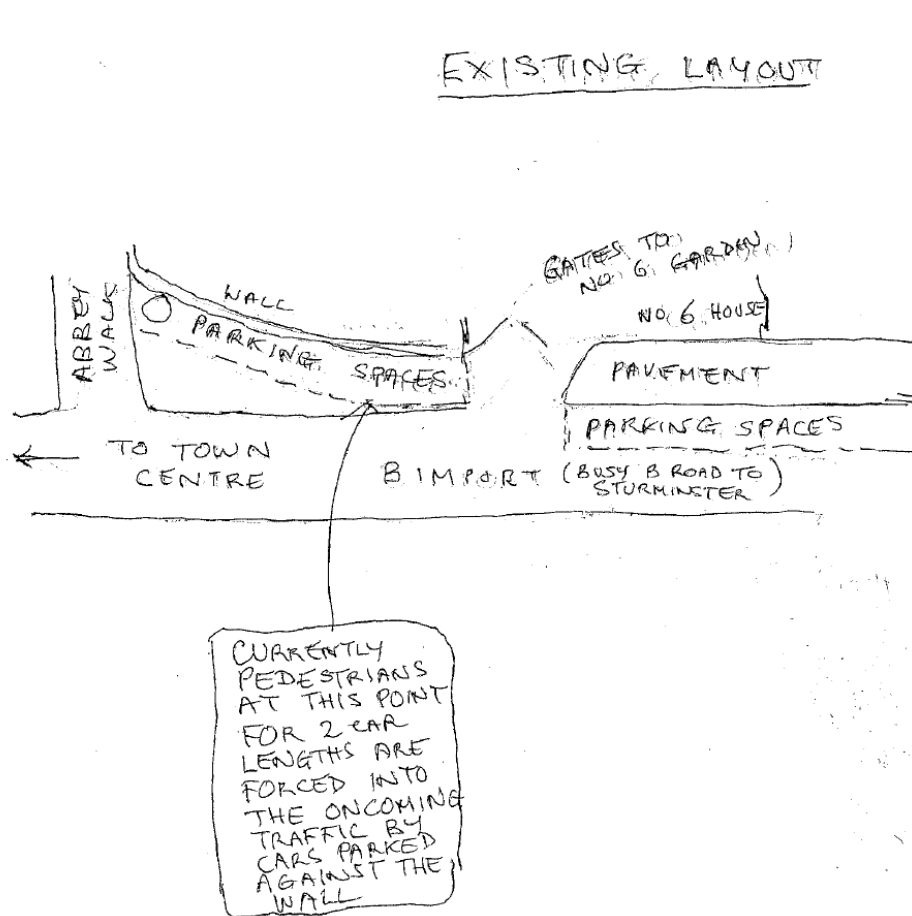 EXISTING LAYOUT
GATES TO
NO. 6 GARDEN
NO. 6 HOUSE
ABBEY
WALK
WALL
PARKING
SPACES
PAVEMENT
PARKING SPACES
TO TOWN
CENTRE
BIMPORT (BUSY B ROAD TO
STURMINSTER)
CURRENTLY
PEDESTRIANS
AT THIS POINT
FOR 2 CAR
LENGTHS ARE
FORCED INTO
THE ONCOMING
TRAFFIC BY
CARS PARKED
AGAINST THE
WALL